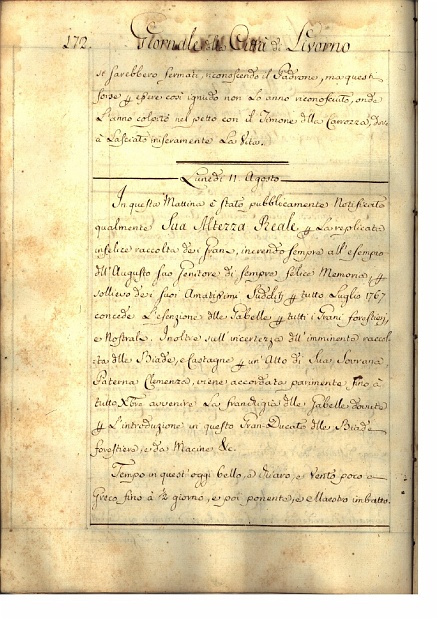 172. Giornale della Città di Livorno
si sarebbero fermati, riconoscendo il Padrone, ma questi
forse p essere così ignudo non Lo anno riconosciuto, onde
L'anno colpito nel petto con il Timone dlla Carrozza, dove
à Lasciato miseramente La Vita.
Lunedì 11. Agosto
In questa Mattina è stato pubblicamente Notificato
qualmente Sua Altezza Reale p La replicata
infelice raccolta dei Grani, inerendo sempre all'esempio
dll'Augusto suo Genitore di sempre felice Memoria, p
sollievo dei suoi Amatissimi Sudditi p tutto Luglio 1767
concede L'esenzione dlle Gabelle p tutti i Grani forestieri,
e Nostrale. Inoltre sull'incertezza dll'imminente raccol
ta dlle Biade, e Castagne p un'Atto di Sua Sovrana
Paterna Clemenza, viene accordata parimente fino à
tutto Xbre avvenire La franchigia dlle Gabelle dovute
p L'introduzione in questo Gran-Ducato dlle Biade
forestiere, e da Macine &c.
Tempo in quest'oggi bello, e Chiaro, e Vento poco a
Greco fino à ½ giorno, e poi ponente, e Maestro imbratto.